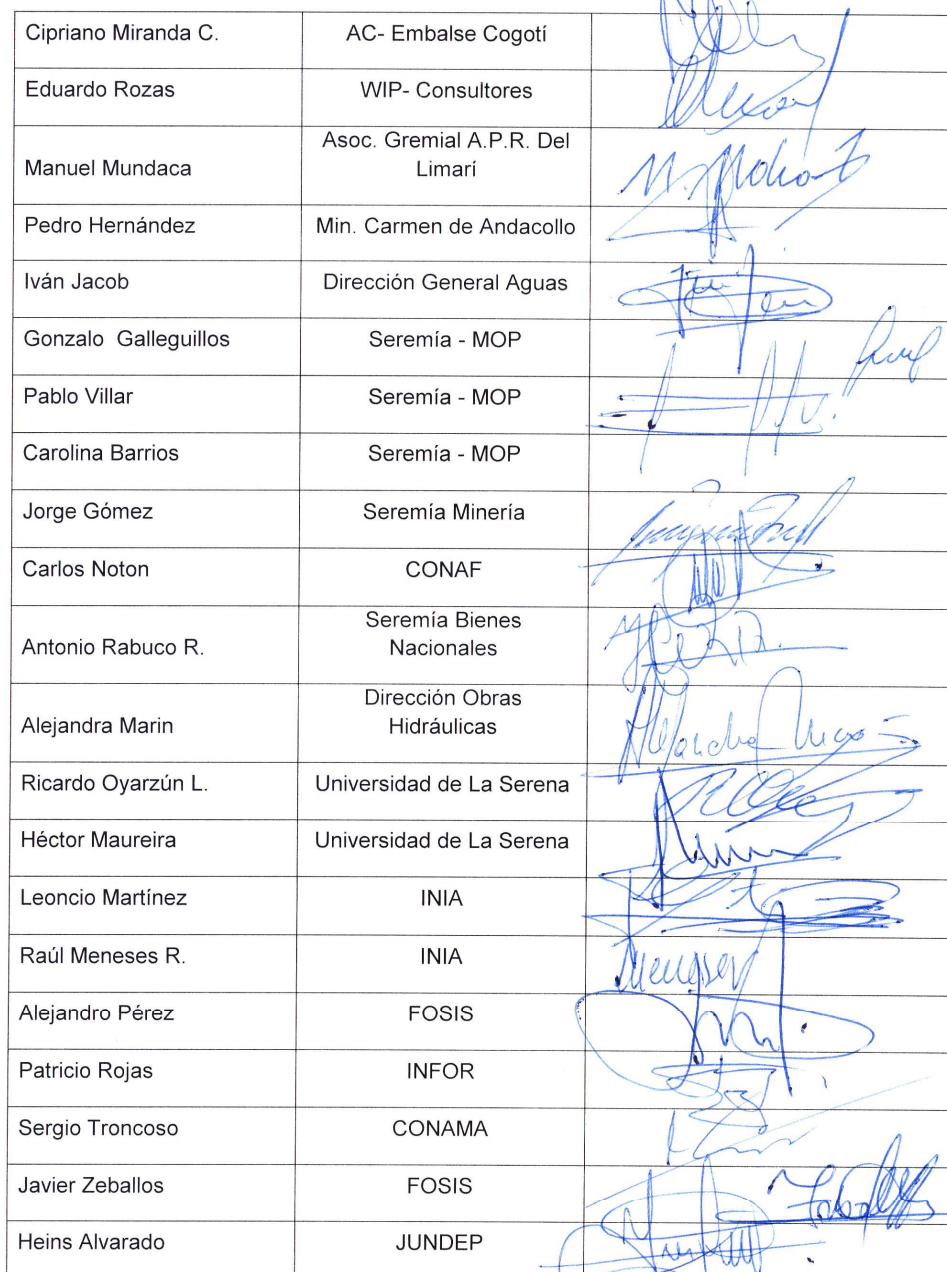 Cipriano Miranda C. AC- Embalse Cogotí
Eduardo Rozas WIP- Consultores
Manuel Mundaca Asoc. Gremial A.P.R. Del
Limarí
Pedro Hernández Min. Carmen de Andacollo
Iván Jacob Dirección General Aguas
Gonzalo Galleguillos Seremía - MOP
Pablo Villar Seremía - MOP
Carolina Barrios Seremía - MOP
Jorge Gómez Seremía Minería
Carlos Noton CONAF
Antonio Rabuco R. Seremía Bienes
Nacionales
Alejandra Marin Dirección Obras
Hidráulicas
Alejandra
Ricardo Oyarzún L. Universidad de La Serena
Héctor Maureira Universidad de La Serena
Leoncio Martínez INIA
Raúl Meneses R. INIA
Alejandro Pérez FOSIS
Patricio Rojas INFOR
Sergio Troncoso CONAMA
Javier Zeballos FOSIS
Heins Alvarado JUNDEP